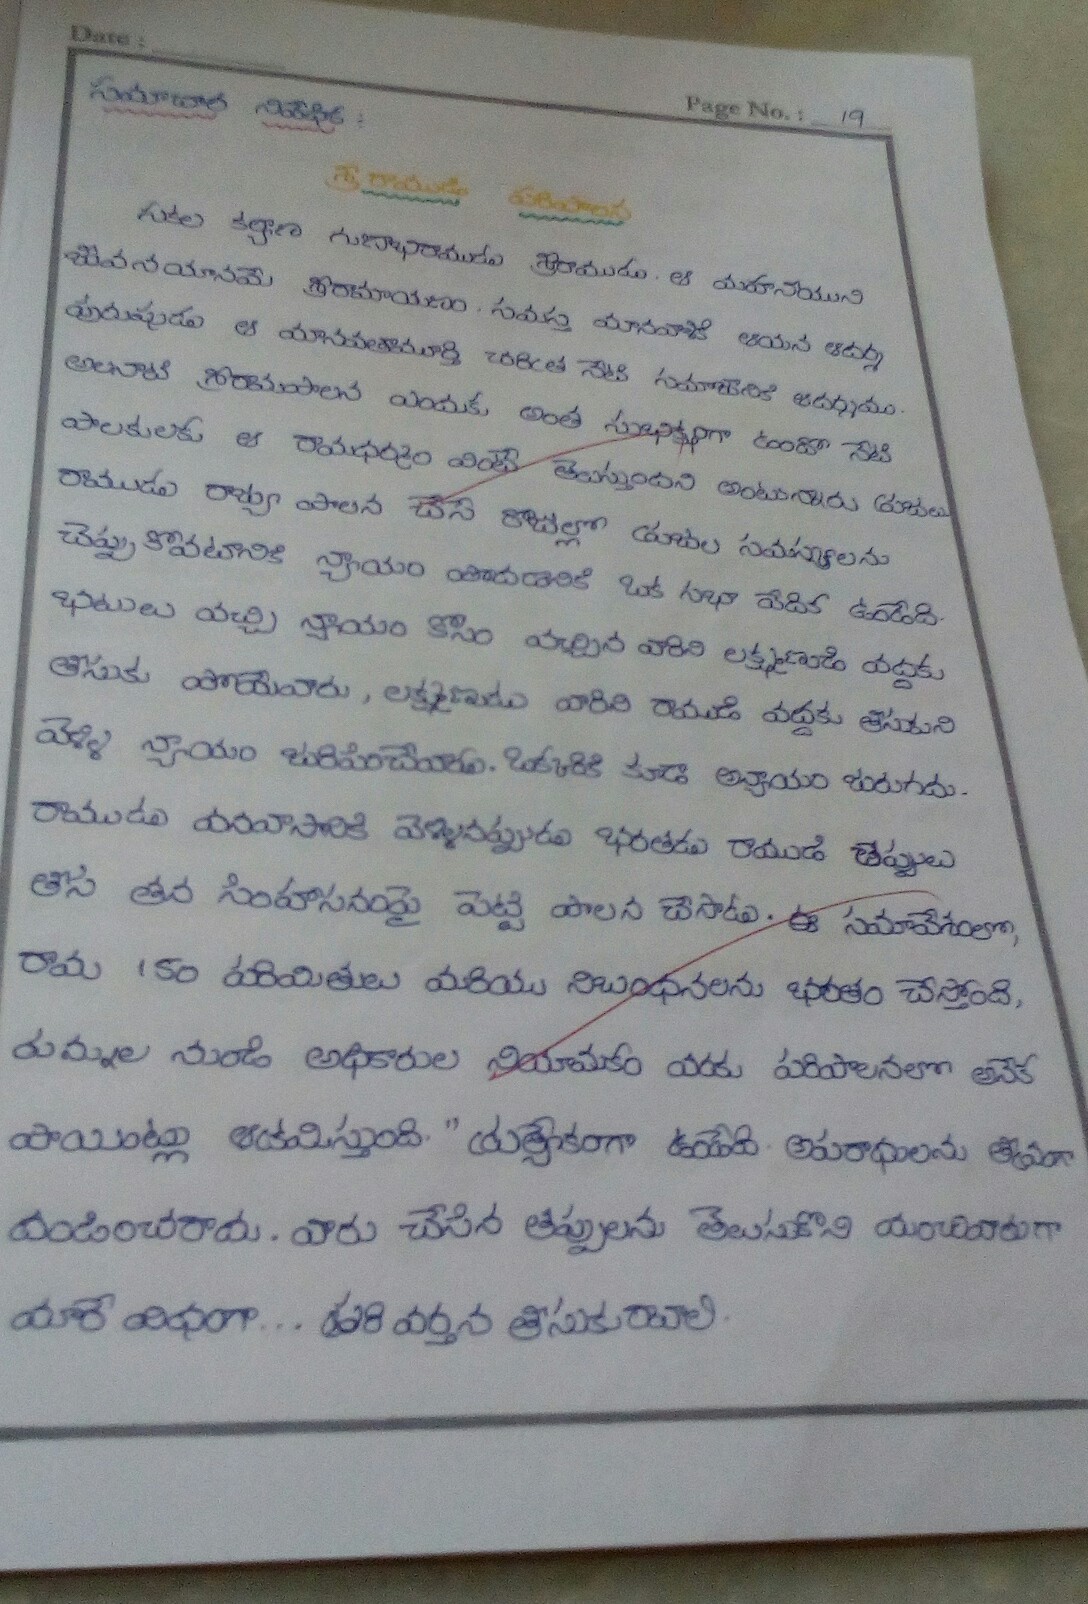 Date :
Page No. : 19
సమాచార నివేదిక :
శ్రీ రాముడి పరిపాలన
సకల కల్యాణ గుణాభిరాముడు శ్రీరాముడు. ఆ మహనీయుని
జీవనయానమే శ్రీరామాయణం. సమస్త మానవాళికి ఆయన ఆదర్శ
పురుషుడు ఆ మానవతామూర్తి చరిత నేటి సమాజానికి ఆదర్శమం.
అలనాటి శ్రీరామపాలన ఎందుకు అంత సుభిక్షంగా ఉండో నేటి
పాలకులకు ఆ రామధర్మం వింటే తెలుస్తుందని అంటున్నారు ప్రజలు
రాముడు రాజ్య పాలన చేసే రోజుల్లో ప్రజల సమస్యలను
చెప్పుకోవటానికి న్యాయం పొందడానికి ఒక సభా వేదిక ఉండేది.
భటులు వచ్చి న్యాయం కోసం వచ్చిన వారిని లక్ష్మణుడి వద్దకు
తీసుకు పోయేవారు, లక్ష్మణుడు వారిని రాముడి వద్దకు తీసుకుని
వెళ్ళి న్యాయం జరిపించేవాడు. ఒక్కరికి కూడా అన్యాయం జరుగదు.
రాముడు వనవాసానికి వెళ్ళినప్పుడు భరతడు రాముడి చెప్పులు
తీసి తన సింహాసనంపై పెట్టి పాలన చేసాడు. ఈ సమావేశంలో,
రామ 150 పరిమితులు మరియు నిబంధనలను భరతం చేస్తోంది,
నుండి అధికారుల నియామకం వరకు పరిపాలనలో అనేక
పాయింట్లు ఆక్రమిస్తుంది." ప్రత్యేకంగా ఉండేది. అపరాధులను తీవ్రంగా
దండించరాదు. వారు చేసిన తప్పులను తెలుసుకొని మంచివారుగా
మారే విధంగా... పరివర్తన తీసుకురావాలి.